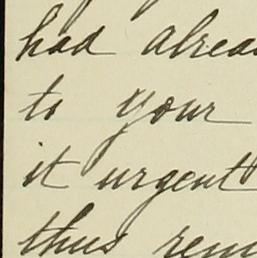 had alrea
to your
it urgent
thus rem